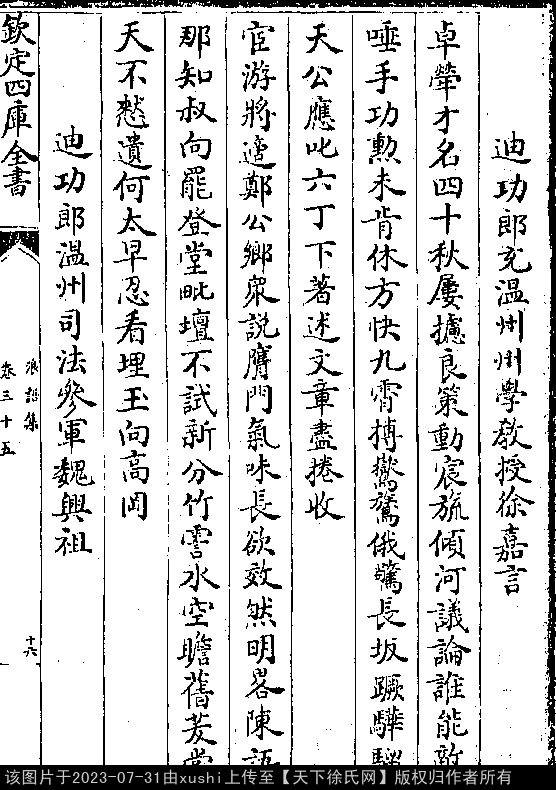 迪功郎充溫州州學敎授徐嘉言
卓犖才名四十秋屢攄良策動宸旒傾河議論誰能敵
唾手功勲未肯休方快九霄摶鷙鶱俄驚長坂蹶驊騮
天公應叱六丁下著述文章盡捲收
宦游將遍鄭公鄉衆説膺門氣味長欲效然明畧陳語
那知叔向罷登堂毗壇不試新分竹霅水空瞻舊芳棠
天不憗遺何太早忍看埋玉向高岡
迪功郎溫州司法參軍魏興祖
欽定四庫全書
浪語集
卷三十五
十六
该图片于2023-07-31由xushi上传至【天下徐氏网】版权归作者所有